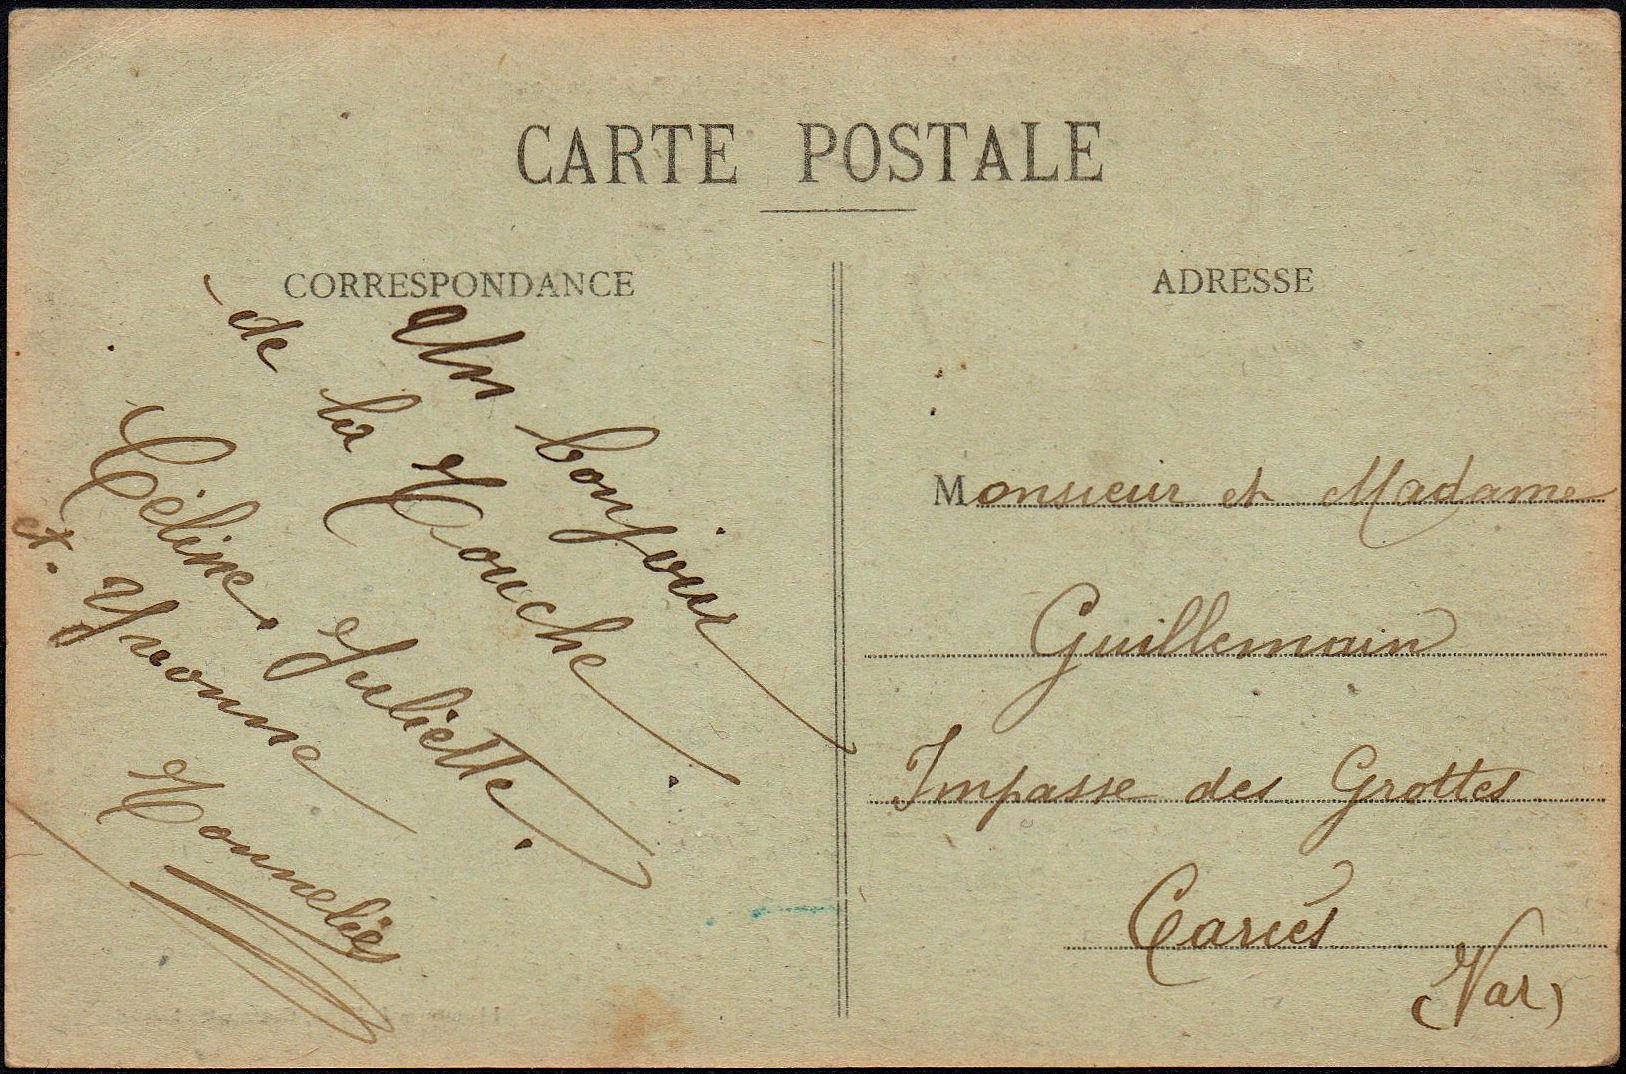 CARTE POSTALE
CORRESPONDANCE
ADRESSE
Un bonjour
de la Touche.
Céline. Juliette.
et. Yvonne
Monsieur et Madame
Guillemain
Impasse des Grottes
Carcés
(Var)